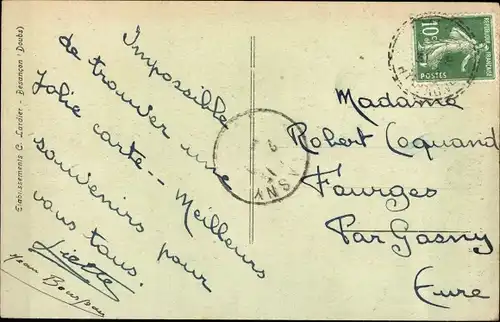 Etablissements C. Lardier - Besançon (Doubs)
Impossible
de trouver une
jolie carte -- Meilleurs
souvenirs pour
vous tous.
REPUBLIQUE FRANÇAISE
10c
POSTES
Madame
Robert Coquand
Fourges
Par Gasny
Eure